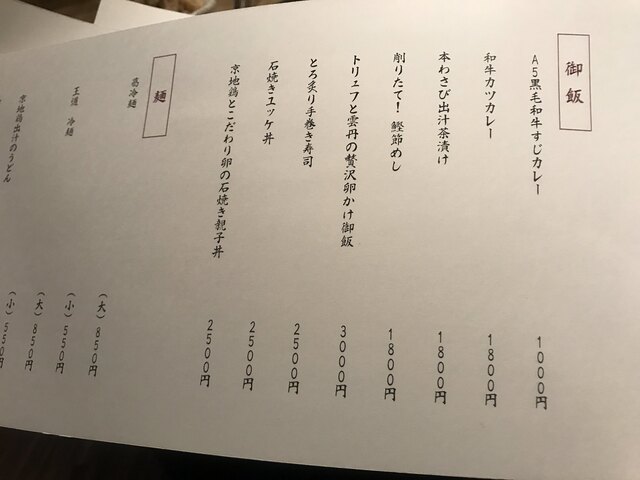 御飯
A5黒毛和牛すじカレー 1000円
和牛カツカレー 1800円
本わさび出汁茶漬け 1800円
削りたて！鰹節めし 1800円
トリュフと雲丹の贅沢卵かけ御飯 3000円
とろ炙り手巻き寿司 2500円
石焼きユッケ丼 2500円
京地鶏とこだわり卵の石焼き親子丼 2500円
麺
葛冷麺
（大）850円
王道 冷麺
（小）550円
（大）850円
京地鶏出汁のうどん
（小）550円